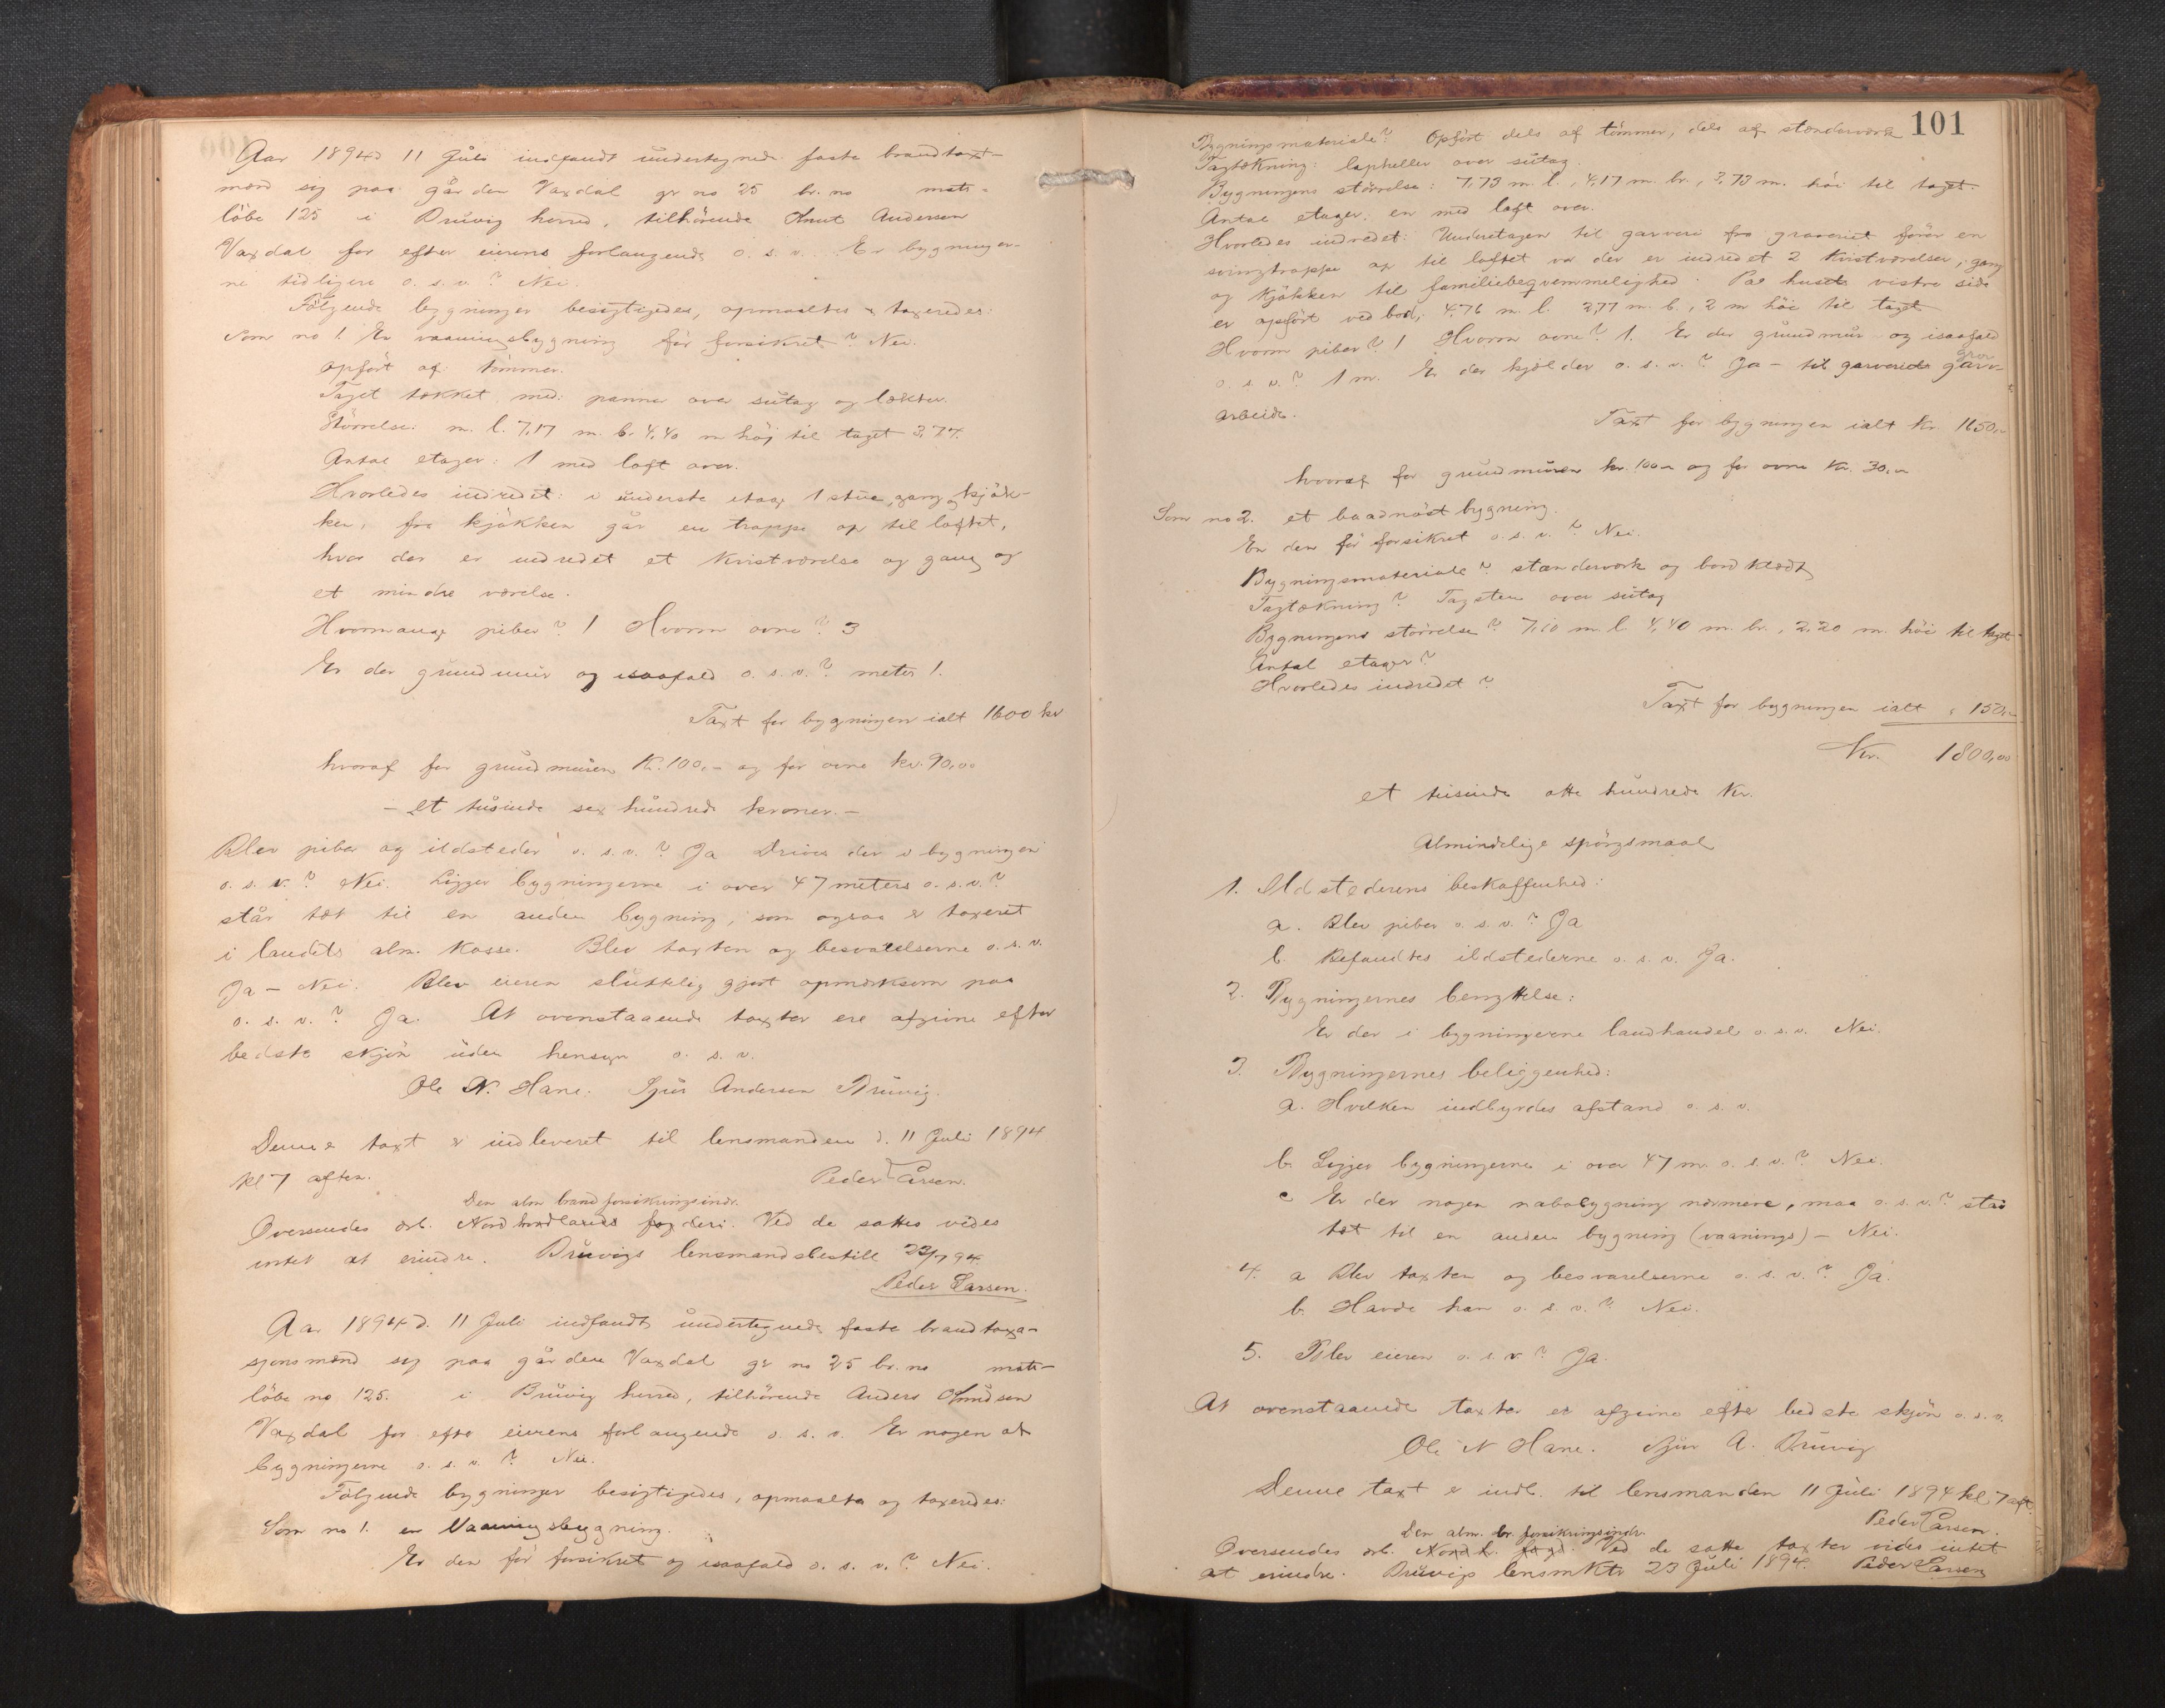 Aar 1894 d 11 Juli indfandt undertegnede faste brandtaxt-
mænd sig paa gården Vaxdal gr no 25 br. no matr-
löbe 125 i Bruvig herred, tilhörende Knut Andersen
Vaxdal for efter eierens forlangende o. s. v. Er bygninger-
ne tidligere o. s. v? Nei.
Fölgende bygninger besigtigedes, opmaaltes & taxeredes:
Som no 1. En vaaningsbygning för forsikret? Nei.
opfört af: tömmer.
Taget tækket med: panner over sutag og lækter.
Störrelse: m. l. 7,17 m. br 4,40 m höj til taget 3,77.
Antal etager: 1 med loft over.
Hvorledes indredet: i underste etag 1 stue, gang og kjök-
ken, fra kjökken går en trappe op til loftet,
hvor der er indredet et kvistværelse og gang og
et mindre værelse.
Hvormange piber? 1 Hvorm ovne? 3
Er der grundmur og isaafald o. s. v.? meter 1.
Taxt for bygningen ialt 1600 kr
hvoraf for grundmuren Kr. 100.- og for ovne kr. 90,00
- et tusinde sex hundrede kroner. -
Blev piber og ildsteder o. s. v.? Ja Drives der i bygningen
o. s. v.? Nei. Ligger bygningerne i over 47 meters o. s. v.?
står tæt til en anden bygning, som ogsaa er taxeret
i landets alm. kasse. Blev taxten og besvarelserne o. s. v.
Ja - Nei. Blev eieren sluttelig gjort opmærksom paa
o. s. v.? Ja. At ovenstaaende taxter ere afgivne efter
bedste skjön uden hensyn o. s. v.
Ole N. Hane. Sjur Andersen Bruvig.
Denne taxt er indleveret til lensmanden d. 11 Juli 1894
kl 7 aften. Peder Larsen.
Den alm brandforsikringsindr.
Oversendes ærb. Nordhordlands fogderi. Ved de satte vides
intet at erindre. Bruvigs lensmandsbestill 23/7 94.
Peder Larsen.
Aar 1894 d. 11 Juli indfandt undertegnede faste brandtaxa-
sjonsmænd sig paa gården Vaxdal gr no 25 br. no matr-
löbe no 125. i Bruvig herred, tilhörende Anders Knudsen
Vaxdal for efter eierens forlangende o. s. v. Er nogen af
bygningerne o. s. v.? Nei.
Fölgende bygninger besigtigedes, opmaaltes og taxeredes:
Som no 1. en Vaaningsbygning.
Er den för forsikret og isaafald o. s. v.? Nei.
101
Bygningsmateriale? Opfört dels af tömmer, dels af stænderværk
Tagtækning: lapheller over sutag.
Bygningens störrelse: 7,73 m. l., 4,17 m. br., 3,73 m. höi til taget.
Antal etager: en med loft over.
Hvorledes indredet: Underetagen til garveri fra graveriet förer en
svingtrappe op til loftet hvor der er indredet 2 kvistværelser, gang
og kjökken til familiebeqvemmelighed. Paa husets vistre side
er opfört vedbod, 4,76 m. l. 2,77 m. b., 2 m höi til taget
Hvorm piber? 1 Hvorm ovne? 1. Er der grundmur og isaafald
o. s. v.? 1 m. Er der kjælder o. s. v.? Ja - til garveriets grov garv-
arbeide.
Taxt for bygningen ialt Kr. 1650,-
hvoraf for grundmuren kr. 100,- og for ovne Kr. 30,-
Som no 2. et baadnöstbygning.
Er den för forsikret o. s. v.? Nei.
Bygningsmateriale? stænderværk og bordklædt
Tagtækning? Tagsten over sutag
Bygningens störrelse? 7,10 m. l. 4,40 m. br., 2,20 m. höi til taget.
Antal etager?
Hvorledes indredet?
Taxt for bygningen ialt " 150,-
Kr. 1800,00
et tusinde otte hundrede Kr.
Almindelige spörgsmaal
1. Ildstedernes beskaffenhed:
a. Blev piber o. s. v.? Ja
b. Befandtes ildstederne o. s. v. Ja.
2. Bygningernes benyttelse:
Er der i bygningerne landhandel o. s. v. Nei.
3. Bygningernes beliggenhed:
a. Hvilken indbyrdes afstand o. s. v.
b. Ligger bygningerne i over 47 m. o. s. v.? Nei.
c Er der nogen nabobygning nærmere, maa o. s. v.? står
tæt til en anden bygning (vaanings) - Nei.
4. a Blev taxten og besvarelserne o. s. v.? Ja.
b. Havde han o. s. v.? Nei.
5. Blev eieren o. s. v? Ja.
At ovenstaaende taxter er afgivne efter bedste skjön o. s. v.
Ole N Hane. Sjur A. Bruvig
Denne taxt er indl. til lensmanden 11 Juli 1894 kl. 7 aft.
Peder Larsen.
Den alm. br. forsikringsindr.
Oversendes ærb. Nordh. fogd. Ved de satte taxter vides intet
at erindre. Bruvigs lensmktr 23 Juli 1894. Peder Larsen